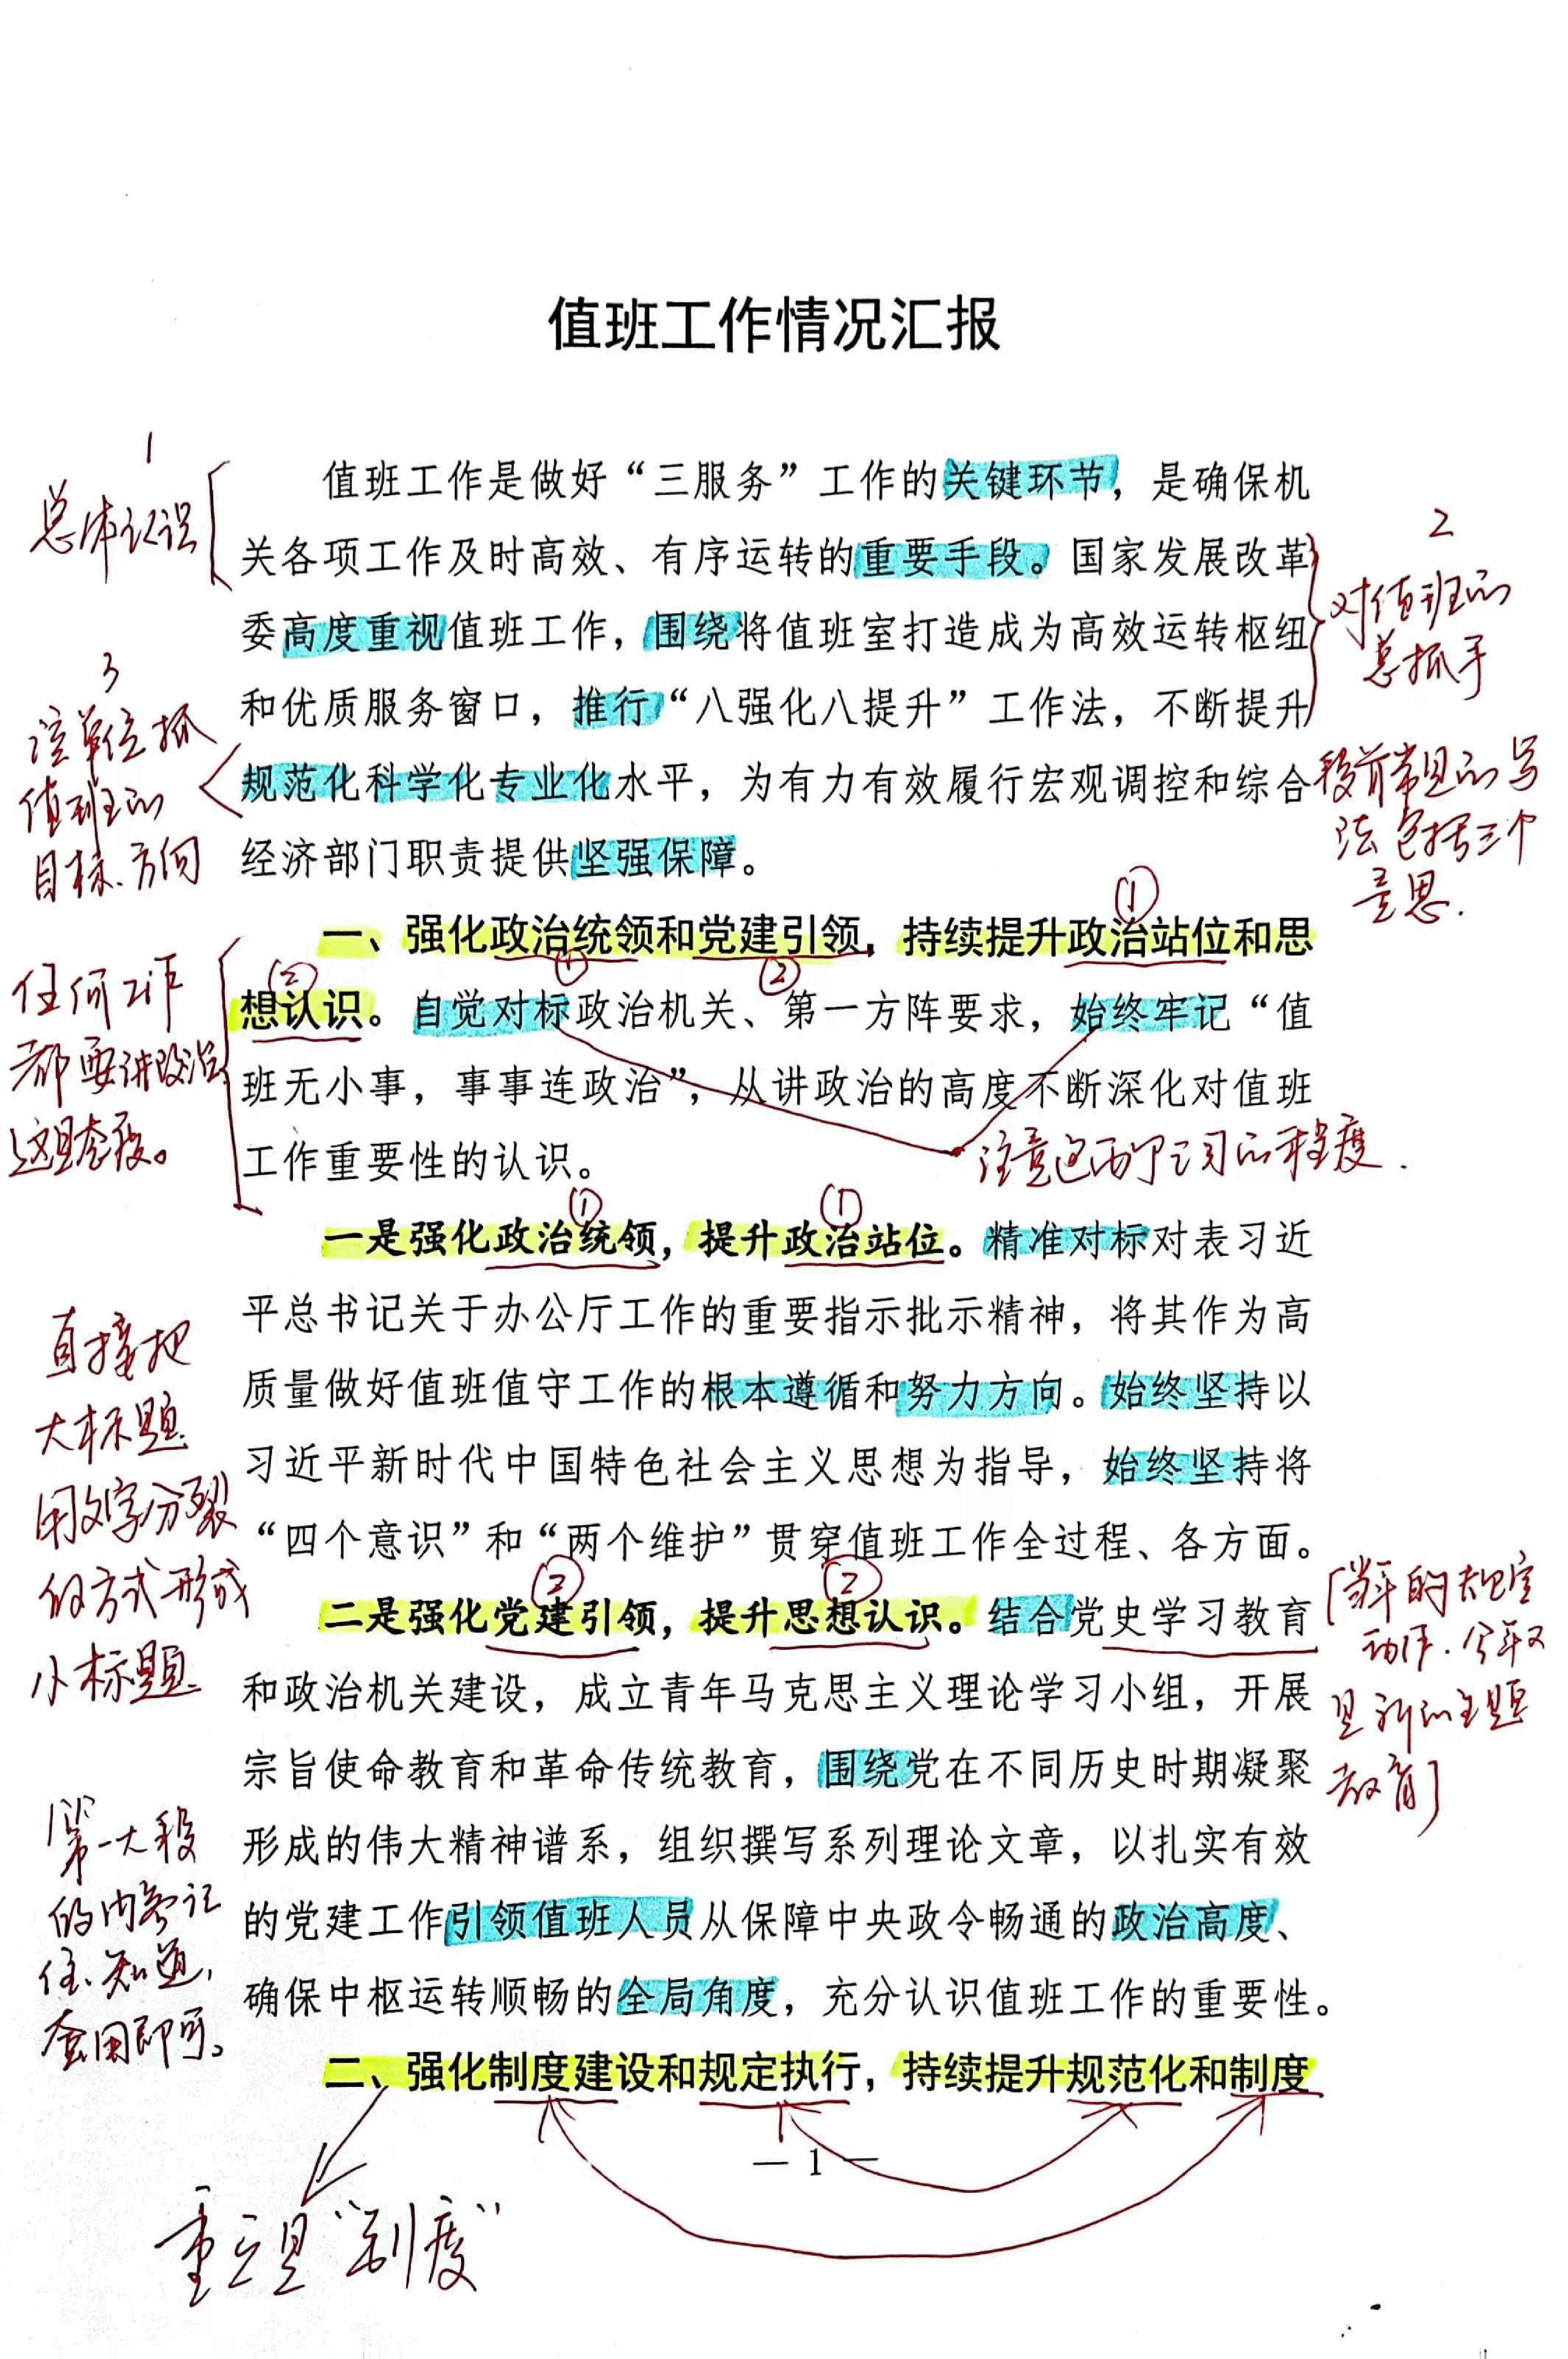 值班工作情况汇报
1
总体认识
值班工作是做好“三服务”工作的关键环节，是确保机
关各项工作及时高效、有序运转的重要手段。国家发展改革
委高度重视值班工作，围绕将值班室打造成为高效运转枢纽
和优质服务窗口，推行“八强化八提升”工作法，不断提升
规范化科学化专业化水平，为有力有效履行宏观调控和综合
经济部门职责提供坚强保障。
2
对值班的
总抓手
3
单位抓
值班的
目标、方向
段前常见的写
法包括三个
意思.
一、强化政治统领和党建引领，持续提升政治站位和思
想认识。自觉对标政治机关、第一方阵要求，始终牢记“值
班无小事，事事连政治”，从讲政治的高度不断深化对值班
工作重要性的认识。
①
②
①
②
任何工作
都要讲政治
这是态度。
注意这两个词的程度.
一是强化政治统领，提升政治站位。精准对标对表习近
平总书记关于办公厅工作的重要指示批示精神，将其作为高
质量做好值班值守工作的根本遵循和努力方向。始终坚持以
习近平新时代中国特色社会主义思想为指导，始终坚持将
“四个意识”和“两个维护”贯穿值班工作全过程、各方面。
①
①
直接把
大标题
用文字分裂
的方式形成
小标题
二是强化党建引领，提升思想认识。结合党史学习教育
和政治机关建设，成立青年马克思主义理论学习小组，开展
宗旨使命教育和革命传统教育，围绕党在不同历史时期凝聚
形成的伟大精神谱系，组织撰写系列理论文章，以扎实有效
的党建工作引领值班人员从保障中央政令畅通的政治高度、
确保中枢运转顺畅的全局角度，充分认识值班工作的重要性。
②
②
[当年的规定
动作.今年又
是新的主题
教育]
第一大段
的内容记
住、知道,
套用即可。
二、强化制度建设和规定执行，持续提升规范化和制度
— 1 —
重点是“制度”